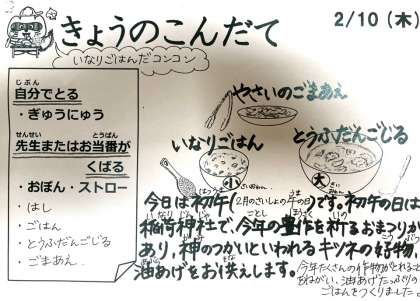 きょうのこんだて
2/10 (木)
いなりごはんだコンコン
じぶん
自分でとる
・ぎゅうにゅう
せんせい とうばん
先生またはお当番が
くばる
・おぼん・ストロー
・はし
・ごはん
・とうふだんごじる
・ごまあえ
やさいのごまあえ
いなりごはん
とうふだんごじる
小
大
今日は初午(2月のさいしょの午の日)です。初午の日は
稲荷神社で、今年の豊作を祈るおまつりが
あり、神のつかいといわれるキツネの好物、
油あげをお供えします。
今年たくさんの作物がとれることを
ねがい、油あげたっぷりの
ごはんをつくりました。